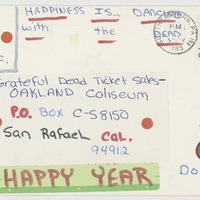 HAPPINESS IS... DANCING
with the DEAD
PM
C.
Grateful Dead Ticket Sales-
OAKLAND Coliseum
P.O. Box C-58150
San Rafael CAL.
94912
HAPPY YEAR
Do